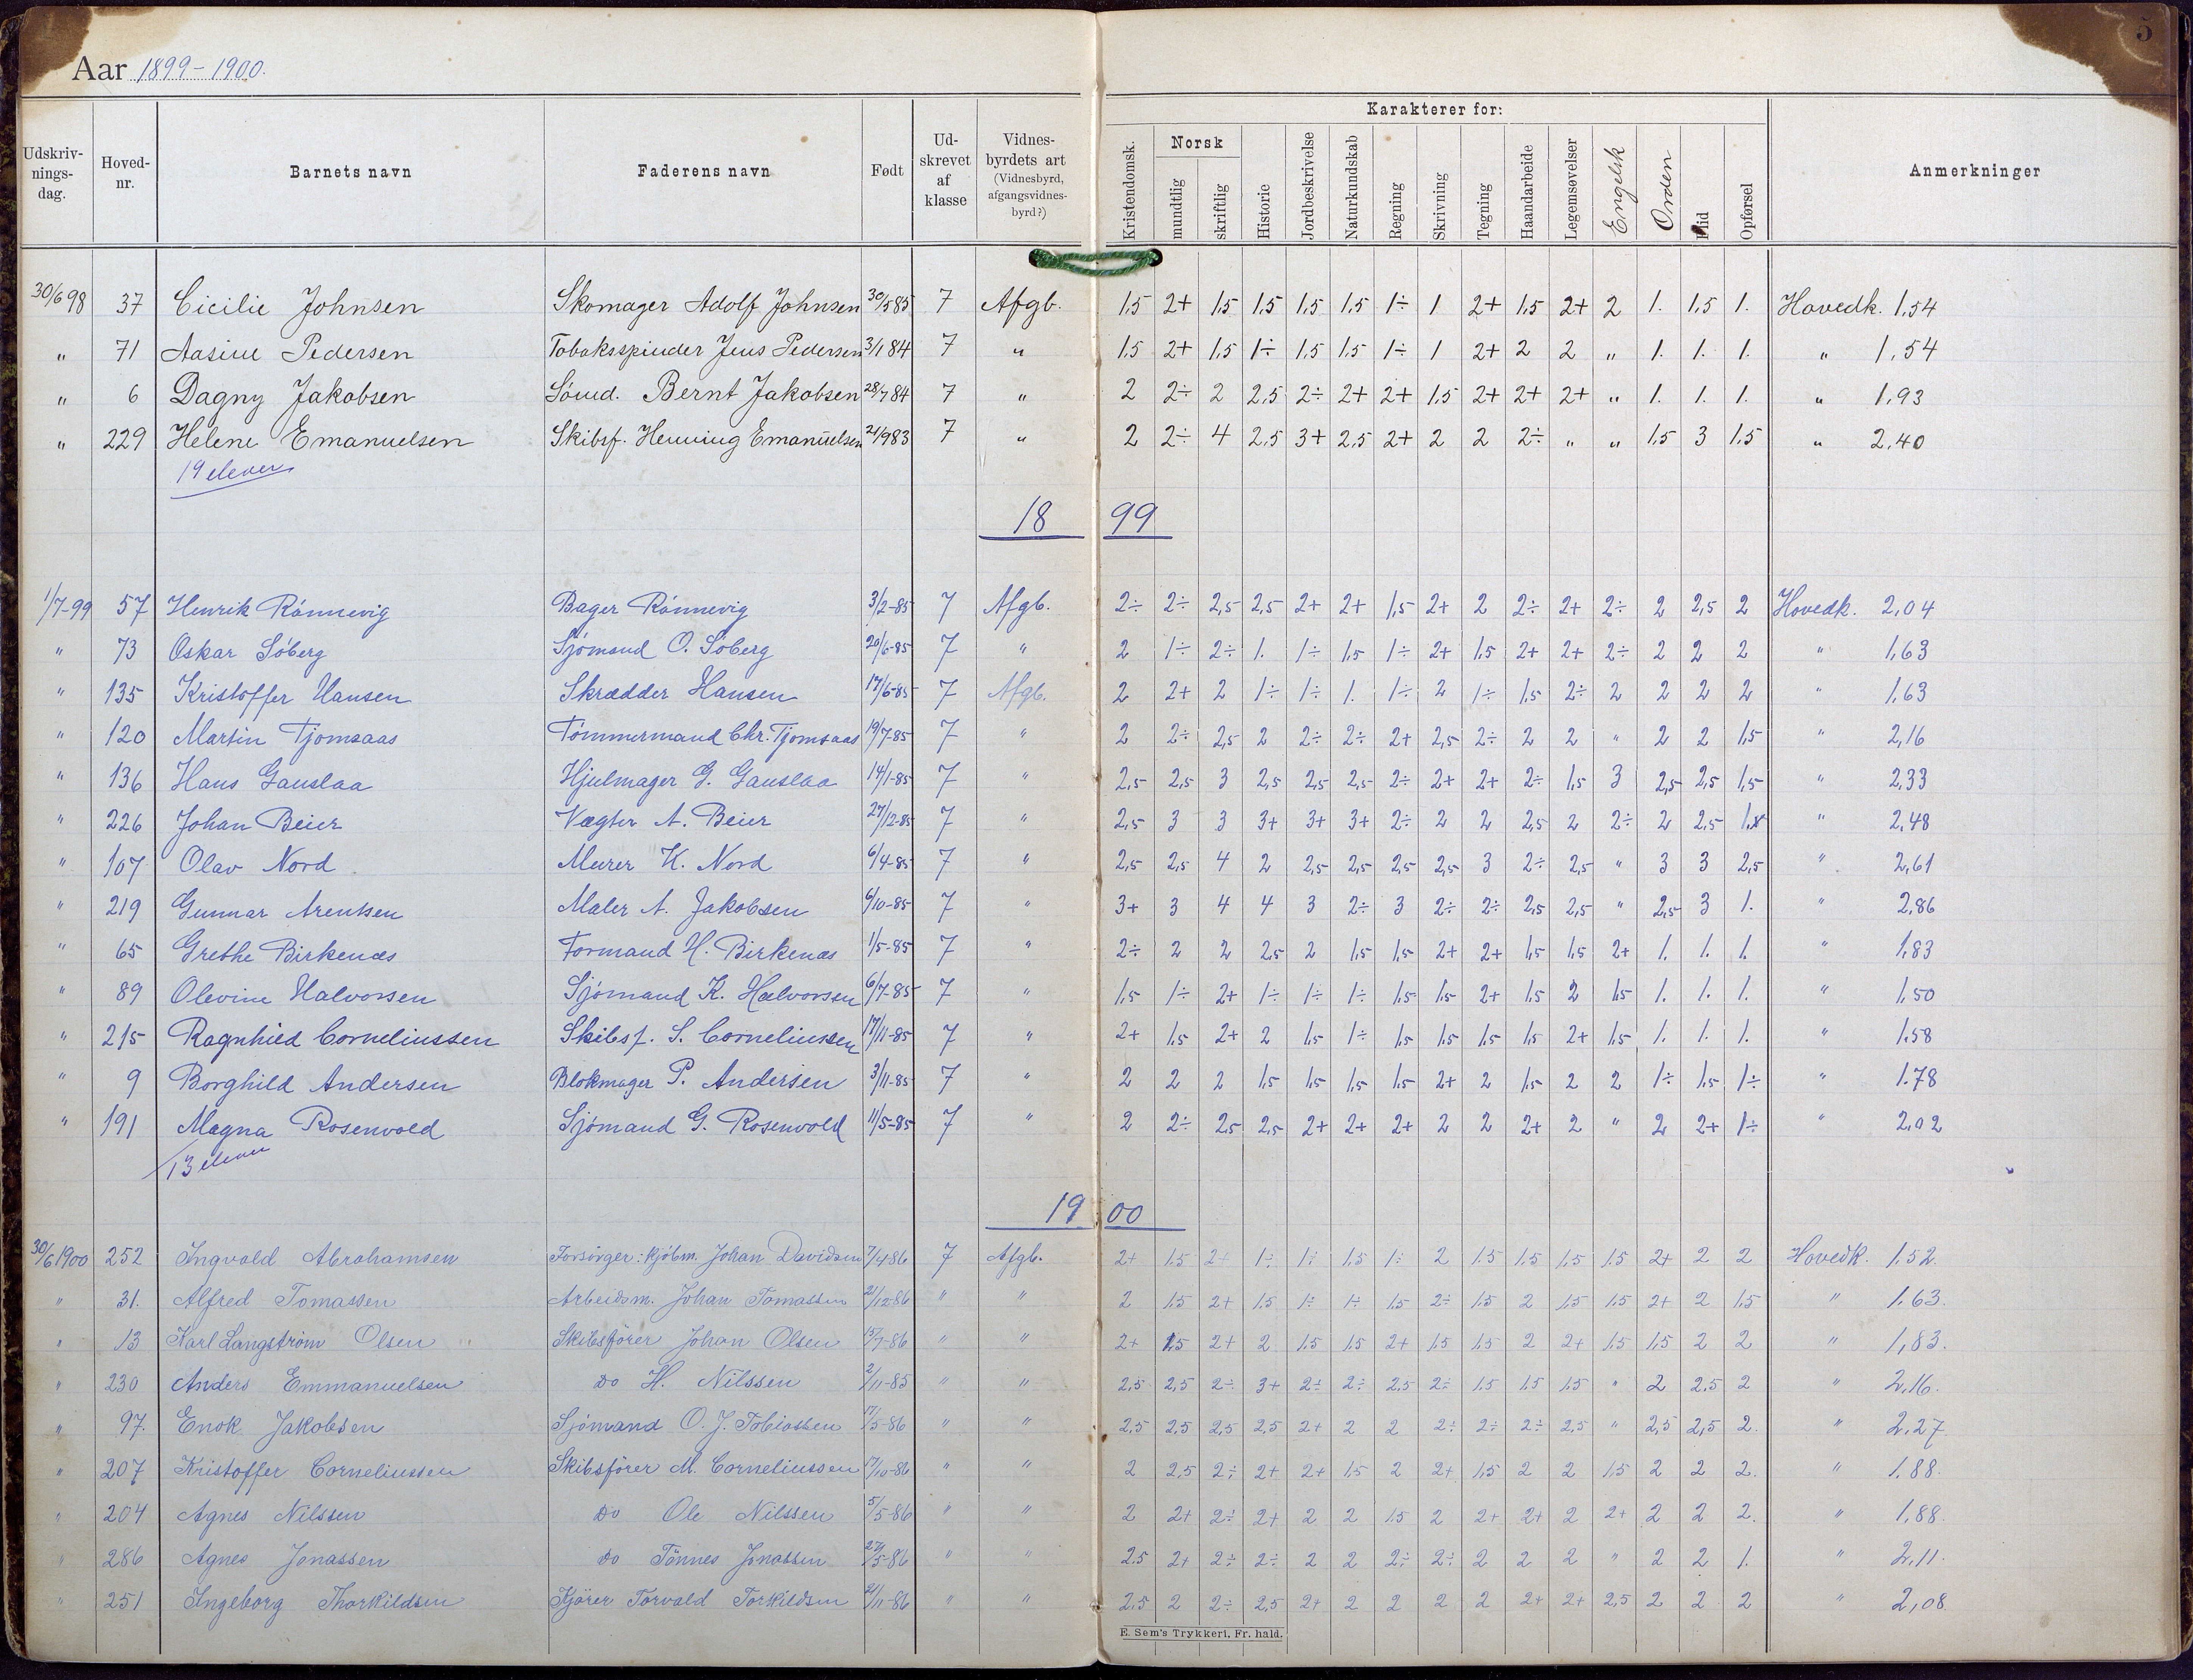 5
Aar 1899-1900.
Karakterer for:
Udskriv-nings-dag. Hoved-nr. Barnets navn Faderens navn Født Ud-skrevet af klasse Vidnes-byrdets art (Vidnesbyrd, afgangsvidnes-byrd?) Kristendomsk. Norsk mundtlig skriftlig Historie Jordbeskrivelse Naturkundskab Regning Skrivning Tegning Haandarbeide Legemsøvelser Engelsk Orden Flid Opførsel Anmerkninger
30/6 98 37 Cicilie Johnsen Skomager Adolf Johnsen 30/5 85 7 Afgb. 1,5 2+ 1,5 1,5 1,5 1,5 1÷ 1 2+ 1,5 2+ 2 1. 1,5 1. Hovedk. 1,54
" 71 Aasine Pedersen Tobaksspinder Jens Pedersen 3/1 84 7 " 1,5 2+ 1,5 1÷ 1,5 1,5 1÷ 1 2+ 2 2 " 1. 1. 1. " 1,54
" 6 Dagny Jakobsen Sømd. Bernt Jakobsen 28/7 84 7 " 2 2÷ 2 2,5 2÷ 2+ 2+ 1,5 2+ 2+ 2+ " 1. 1. 1. " 1,93
" 229 Helene Emanuelsen Skibsf. Henning Emanuelsen 21/9 83 7 " 2 2÷ 4 2,5 3+ 2,5 2+ 2 2 2÷ " " 1,5 3 1,5 " 2,40
19 elever
18 99
1/7-99 57 Henrik Rönnevig Bager Rönnevig 3/2-85 7 Afgb. 2÷ 2÷ 2,5 2,5 2+ 2+ 1,5 2+ 2 2÷ 2+ 2÷ 2 2,5 2 Hovedk. 2,04
" 73 Oskar Söberg Sjömand O. Söberg 20/6-85 7 " 2 1÷ 2÷ 1. 1÷ 1,5 1÷ 2+ 1,5 2+ 2+ 2÷ 2 2 2 " 1,63
" 135 Kristoffer Hansen Skrædder Hansen 17/6-85 7 Afgb. 2 2+ 2 1÷ 1÷ 1. 1÷ 2 1÷ 1,5 2÷ 2 2 2 2 " 1,63
" 120 Martin Tjomsaas Tömmermand Chr. Tjomsaas 19/7-85 7 " 2 2÷ 2,5 2 2÷ 2÷ 2+ 2,5 2÷ 2 2 " 2 2 1,5 " 2,16
" 136 Hans Gauslaa Hjulmager G. Gauslaa 14/1-85 7 " 2,5 2,5 3 2,5 2,5 2,5 2÷ 2+ 2+ 2÷ 1,5 3 2,5 2,5 1,5 " 2,33
" 226 Johan Beier Vægter A. Beier 27/12-85 7 " 2,5 3 3 3+ 3+ 3+ 2÷ 2 2 2,5 2 2÷ 2 2,5 " 2,48
" 107 Olav Nord Murer K. Nord 6/4-85 7 " 2,5 2,5 4 2 2,5 2,5 2,5 2,5 3 2÷ 2,5 " 3 3 2,5 " 2,61
" 219 Gunnar Arentsen Maler A. Jakobsen 6/10-85 7 " 3+ 3 4 4 3 2÷ 3 2÷ 2÷ 2,5 2,5 " 2,5 3 1. " 2,86
" 65 Grethe Birkenæs Formand H. Birkenæs 1/5-85 7 " 2÷ 2 2 2,5 2 1,5 1,5 2+ 2+ 1,5 1,5 2+ 1. 1. 1. " 1,83
" 89 Olevine Halvorsen Sjömand K. Halvorsen 6/7-85 7 " 1,5 1÷ 2+ 1÷ 1÷ 1÷ 1,5 1,5 2+ 1,5 2 1,5 1. 1. 1. " 1,50
" 215 Ragnhild Corneliussen Skibsf. S. Corneliussen 17/11-85 7 " 2+ 1,5 2+ 2 1,5 1÷ 1,5 1,5 1,5 1,5 2+ 1,5 1. 1. 1. " 1,58
" 9 Borghild Andersen Blokmager P. Andersen 3/11-85 7 " 2 2 2 1,5 1,5 1,5 1,5 2+ 2 1,5 2 2 1÷ 1,5 1÷ " 1,78
" 191 Magna Rosenvold Sjömand G. Rosenvold 11/5-85 7 " 2 2÷ 2,5 2,5 2+ 2+ 2+ 2 2 2+ 2 " 2 2+ 1÷ " 2,02
13 elever
19 00
30/6 1900 252 Ingvald Abrahamsen Forsörger: Kjöbm. Johan Davidsen 7/4 86 7 Afgb. 2+ 1,5 2+ 1÷ 1÷ 1,5 1÷ 2 1,5 1,5 1,5 1,5 2+ 2 2 Hovedk. 1,52.
" 31. Alfred Tomassen Arbeidsm. Johan Tomassen 21/12 86 " " 2 1,5 2+ 1,5 1÷ 1÷ 1,5 2÷ 1,5 2 1,5 1,5 2+ 2 1,5 " 1,63.
" 13 Karl Langström Olsen Skibsförer Johan Olsen 15/7-86 " " 2+ 1,5 2+ 2 1,5 1,5 2+ 1,5 1,5 2 2+ 1,5 1,5 2 2 " 1,83.
" 230 Anders Emmanuelsen Do H. Nilssen 2/11-85 " " 2,5 2,5 2÷ 3+ 2÷ 2÷ 2,5 2÷ 1,5 1,5 1,5 " 2 2,5 2 " 2,16.
" 97. Enok Jakobsen Sjömand O. J. Tobiassen 17/5-86 " " 2,5 2,5 2,5 2,5 2+ 2 2 2÷ 2÷ 2÷ 2,5 " 2,5 2,5 2. " 2,27.
" 207 Kristoffer Corneliussen Skibsförer M. Corneliussen 17/10-86 " " 2 2,5 2÷ 2+ 2+ 1,5 2 2+ 1,5 2 2 1,5 2 2 2. " 1,88.
" 204 Agnes Nilssen Do Ole Nilssen 5/5-86 " " 2 2+ 2÷ 2+ 2 2 1,5 2 2+ 2+ 2 2+ 2 2 2. " 1,88.
" 286 Agnes Jonassen Do Tönnes Jonassen 27/5-86 " " 2,5 2+ 2÷ 2÷ 2 2 2÷ 2÷ 2 2 2 " 2 2 1. " 2,11.
" 251 Ingeborg Thorkildsen Kjörer Torvald Torkildsen 21/11-86 " " 2,5 2 2÷ 2,5 2+ 2 2 2 2 2+ 2+ 2,5 2 2 2 " 2,08
E. Sem's Trykkeri, Fr. hald.